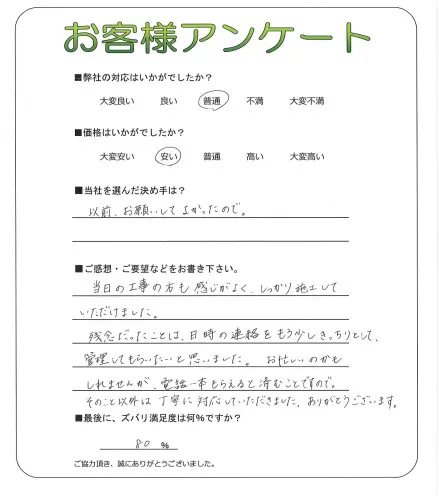 お客様アンケート
■弊社の対応はいかがでしたか？
大変良い 良い 普通 不満 大変不満
■価格はいかがでしたか？
大変安い 安い 普通 高い 大変高い
■当社を選んだ決め手は？
以前、お願いしてよかったので。
■ご感想・ご要望などをお書き下さい。
当日の工事の方も感じがよく、しっかり施工して
いただけました。
残念だったことは、日時の連絡をもう少しきっちりとして、
管理してもらいたいと思いました。 お忙しいのかも
しれませんが、電話一本もらえると済むことですので。
そのこと以外は丁寧に対応していただきました、ありがとうございます。
■最後に、ズバリ満足度は何%ですか？
80 %
ご協力頂き、誠にありがとうございました。